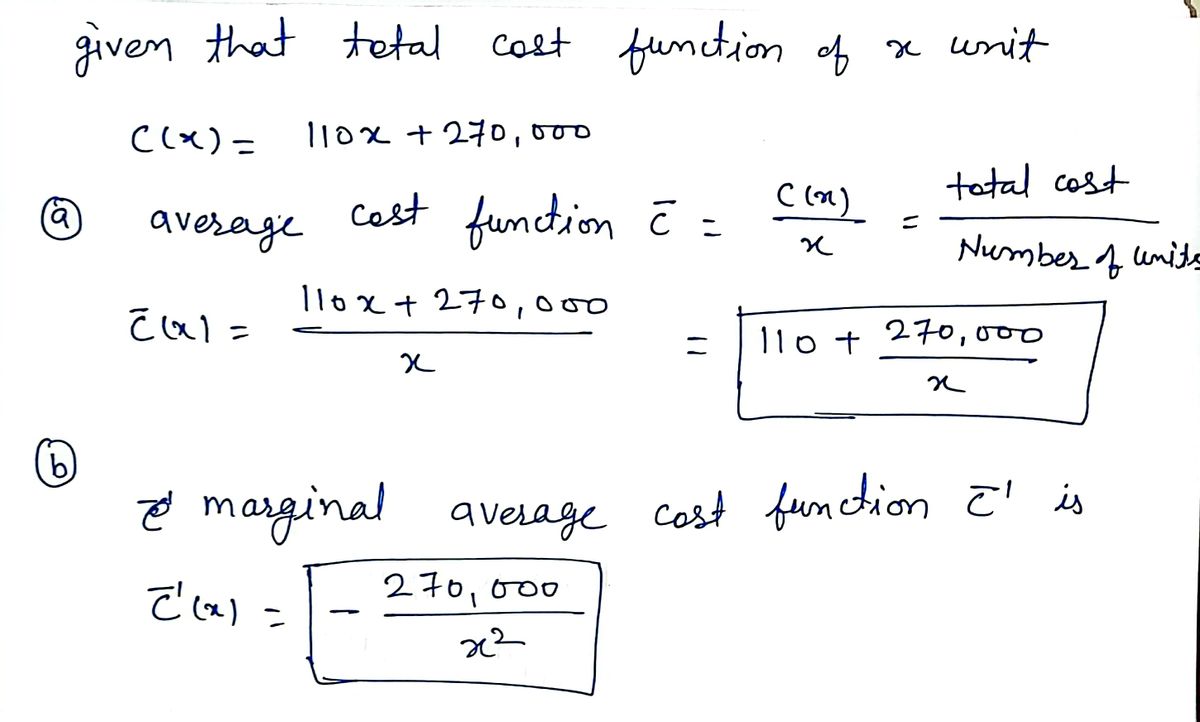 given that total cost function of x unit
C(x) = 110x + 270,000
(a) average cost function c̄ = C(x)/x = total cost / Number of units
c̄(x) = (110x + 270,000)/x = 110 + 270,000/x
(b)
marginal average cost function c̄' is
c̄'(x) = - 270,000/x²